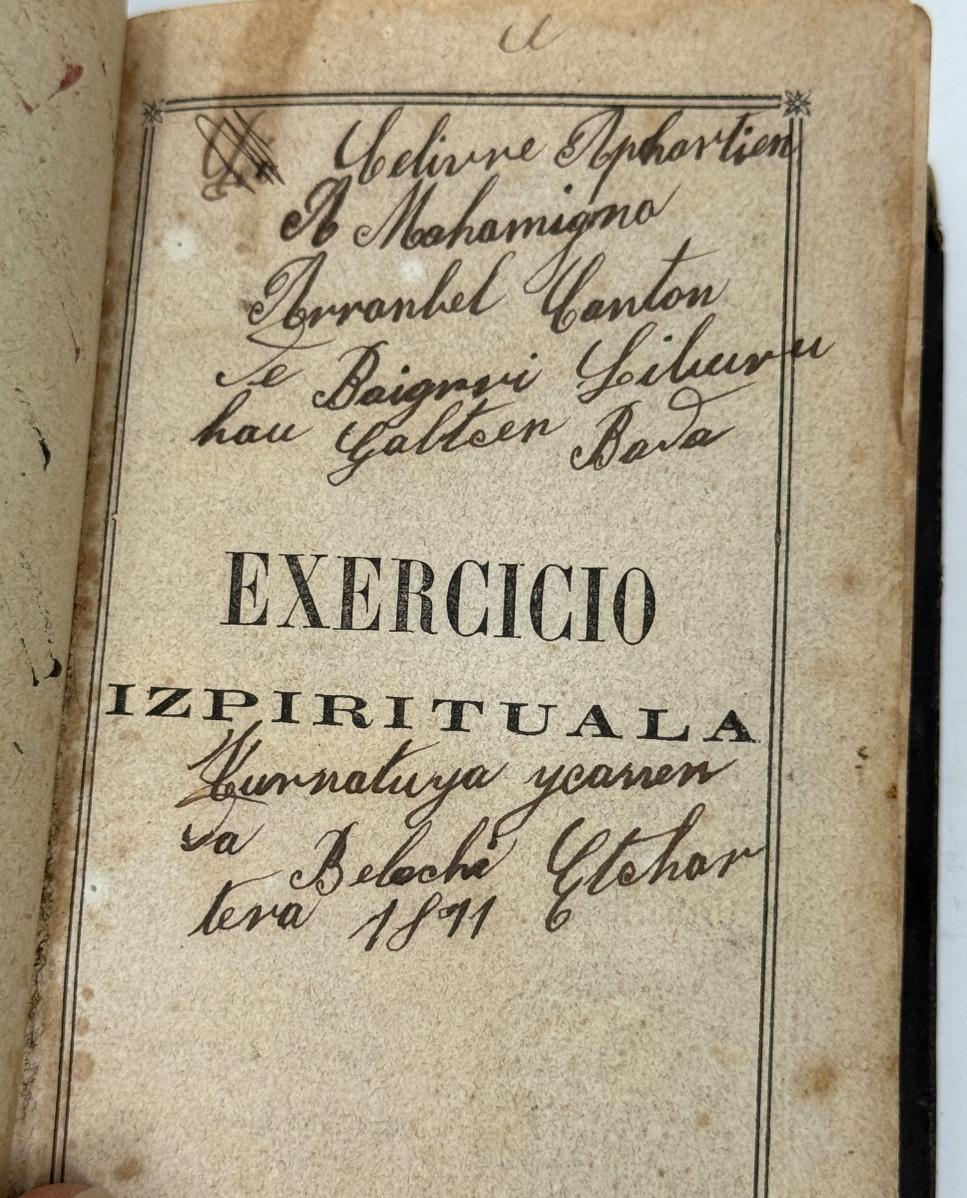 Celivre Aphartien
A Mahamigno
Arranbel Canton
de Baigorri Liburu
hau Galtcen Bada
EXERCICIO
IZPIRITUALA
ycarren
da Belechi Etchar
tera 1891